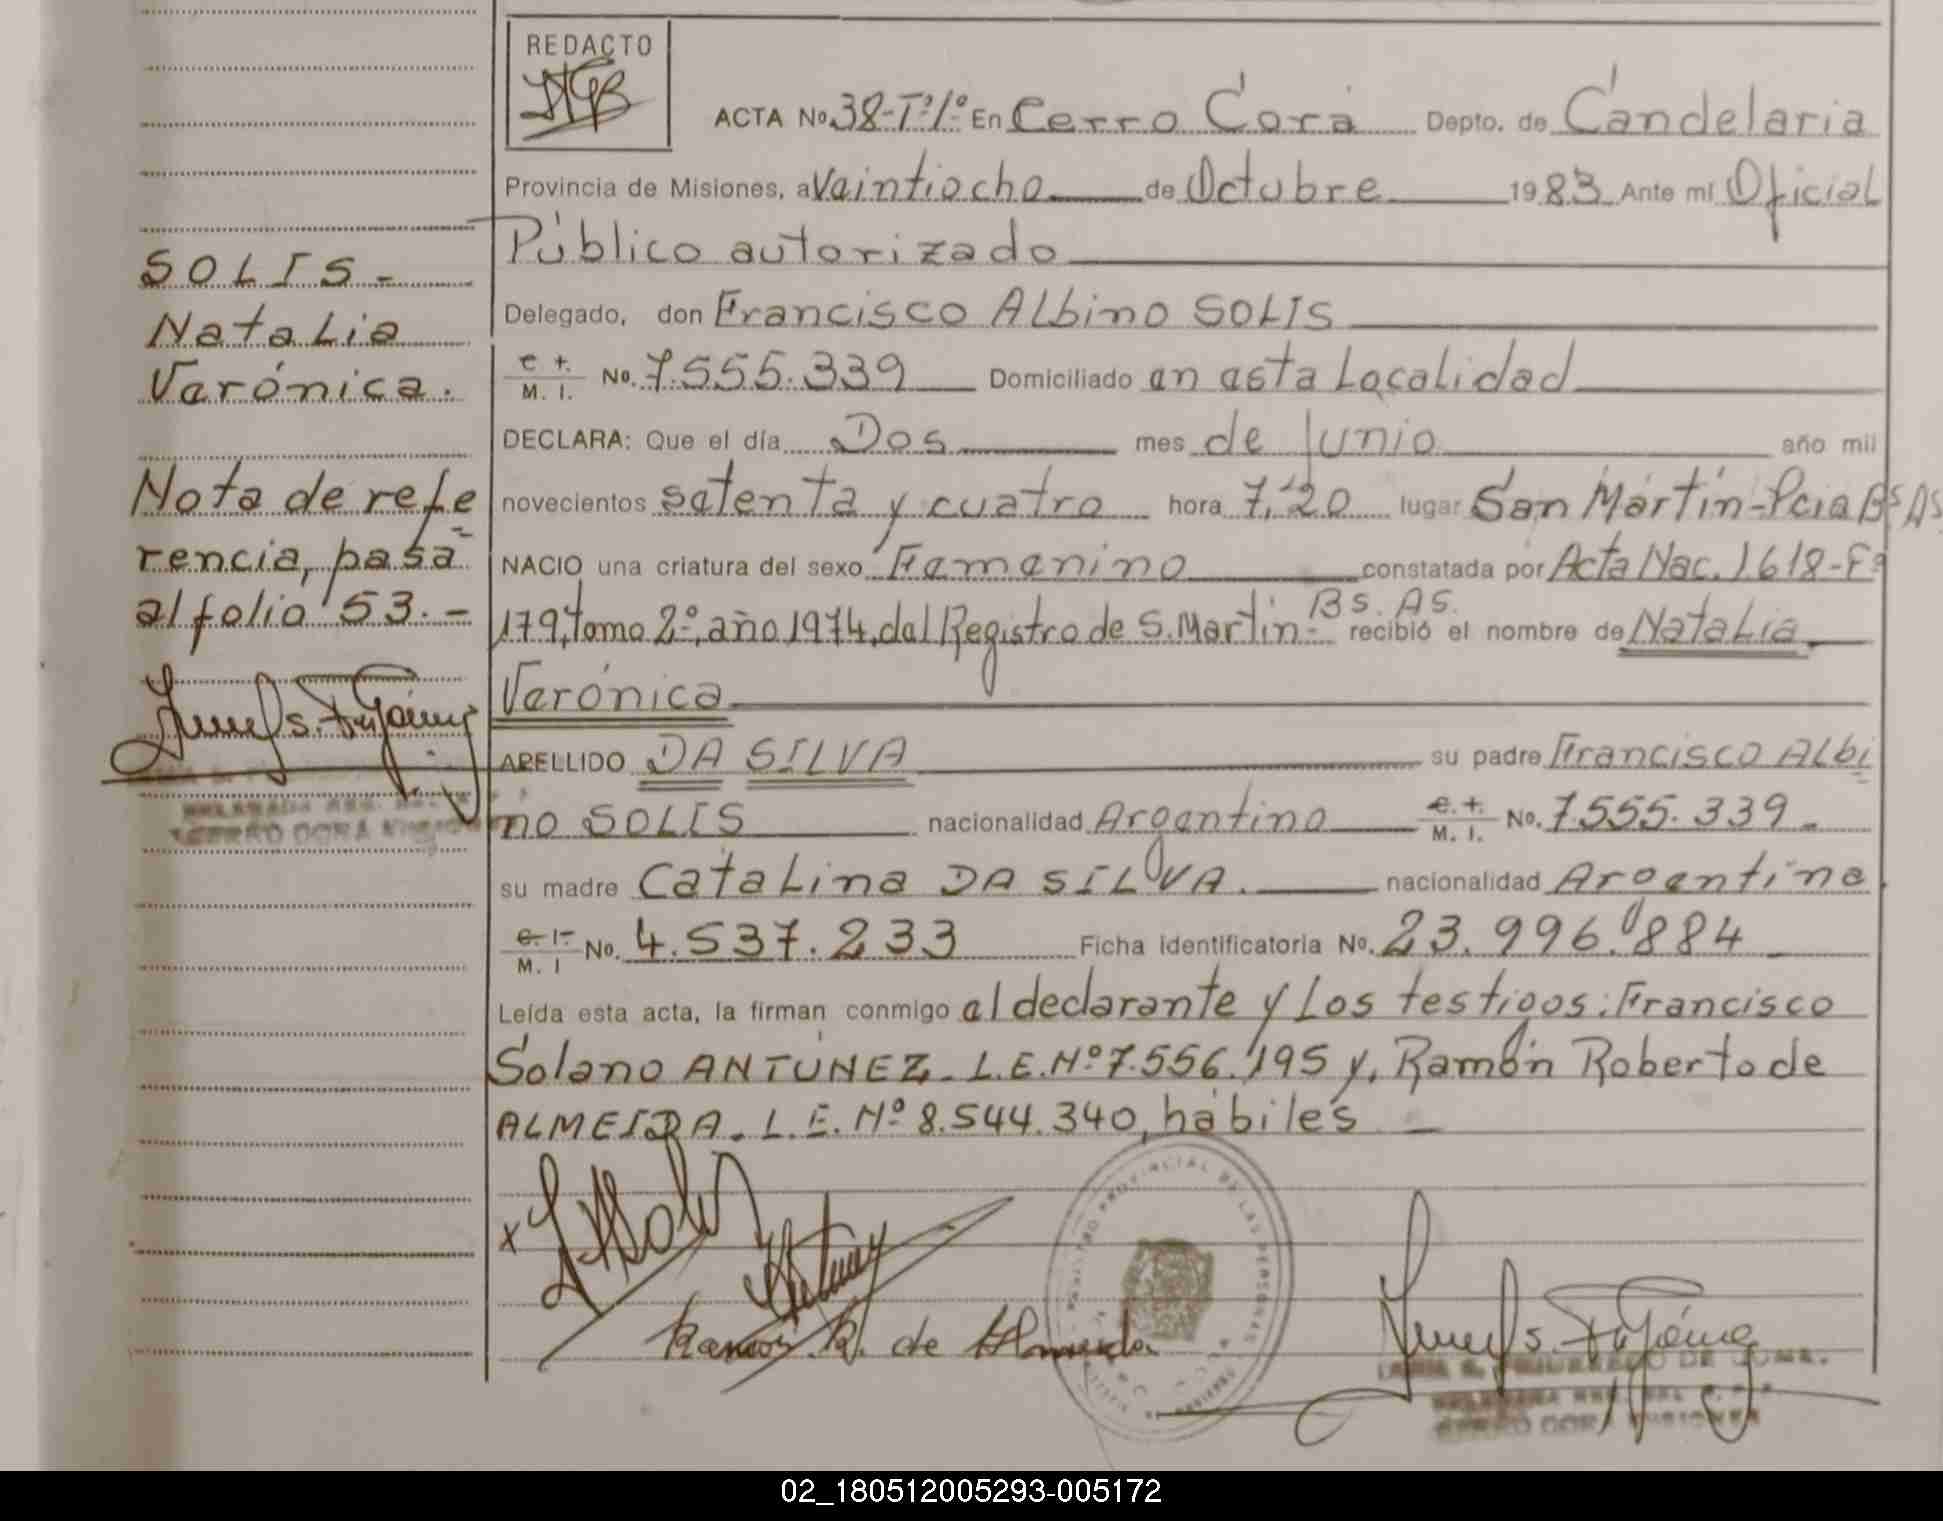 REDACTO
ACTA No. 38-Tº1º En Cerro Corá Depto. de Candelaria
Provincia de Misiones, a Veintiocho de Octubre 1983 Ante mí Oficial
Público autorizado
Delegado, don Francisco Albino SOLIS
M. I. No. 7.555.339 Domiciliado en esta Localidad
DECLARA: Que el día Dos mes de Junio año mil
novecientos setenta y cuatro hora 7,20 lugar San Martín-Pcia Bs As
NACIO una criatura del sexo Femenino constatada por Acta Nac. 1618-Fº
179, tomo 2º, año 1974, del Registro de S. Martín- Bs. As. recibió el nombre de Natalia
Verónica
APELLIDO DA SILVA su padre Francisco Albi
no SOLIS nacionalidad Argentino M. I. No. 7.555.339-
su madre Catalina DA SILVA. nacionalidad Argentina
M. I No. 4.537.233 Ficha identificatoria No. 23.996.884
Leída esta acta, la firman conmigo el declarante y Los testigos: Francisco
Solano ANTUNEZ- L.E.Nº 7.556.195 y, Ramón Roberto de
ALMEIDA- L.E. Nº 8.544.340, hábiles -
SOLIS-
Natalia
Verónica.
Nota de refe
rencia, pasa
al folio 53.-
Ramón R. de Almeida
REGISTRO PROVINCIAL DE LAS PERSONAS
CERRO CORA MISIONES
CERRO CORA MISIONES
02_180512005293-005172